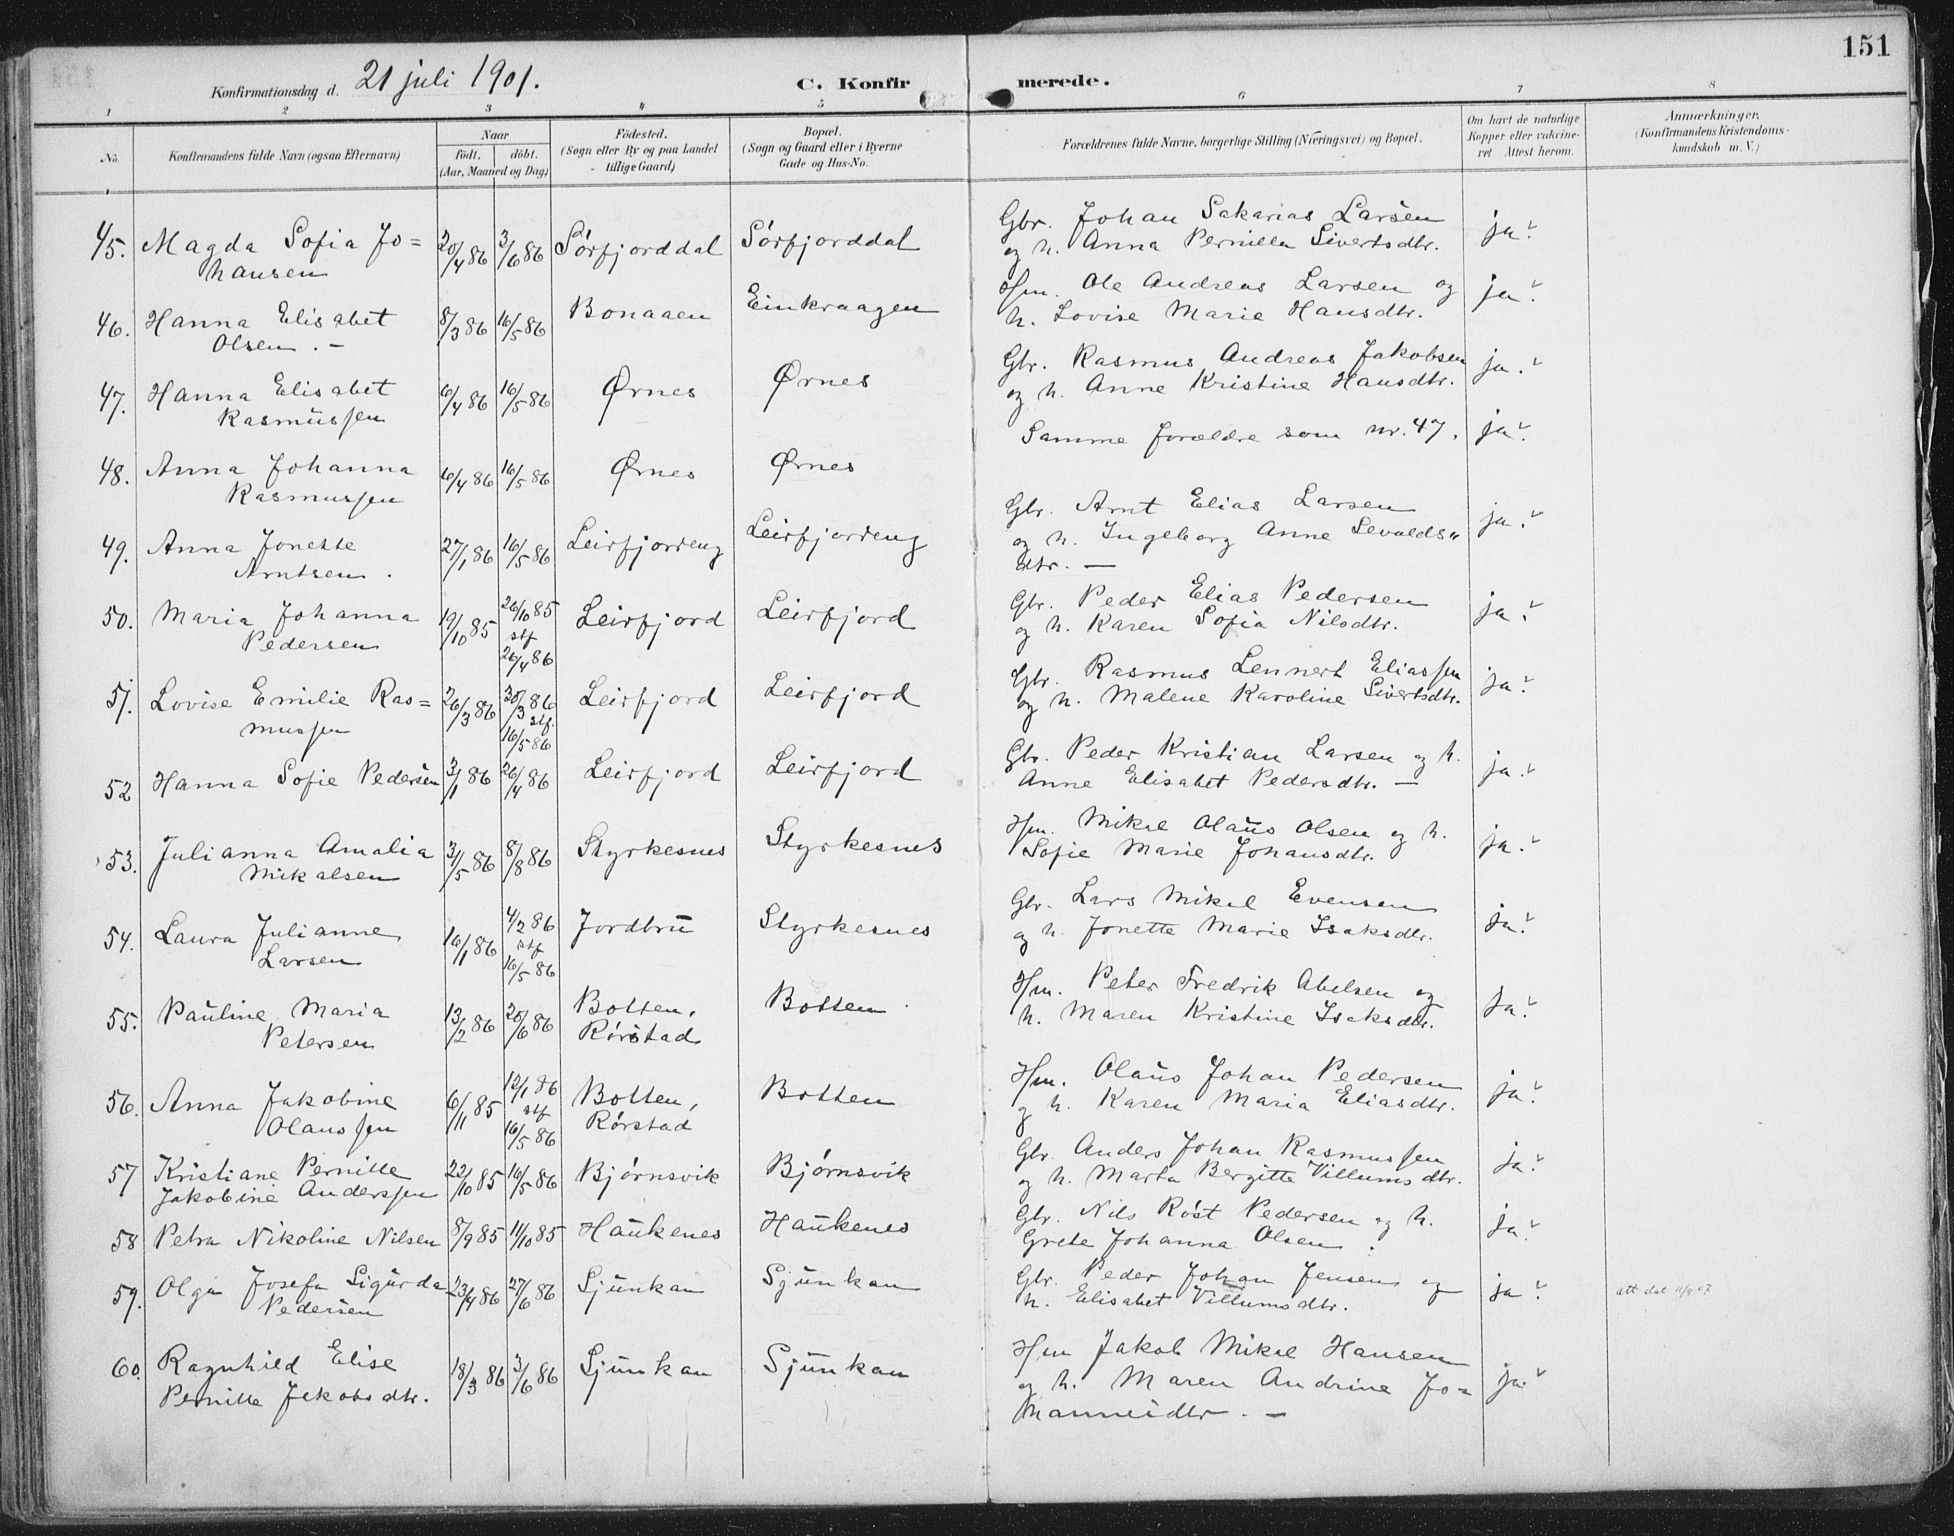 151
Konfirmationsdag d. 21 juli 1901. C. Konfirmerede.
1 2 3 4 5 6 7 8
No. Konfirmandens fulde Navn (ogsaa Efternavn) Naar født. døbt. (Aar, Maaned og Dag) Fødested. (Sogn eller By og paa Landet tillige Gaard) Bopæl. (Sogn og Gaard eller i Byerne Gade og Hus-No. Forældrenes fulde Navne, borgerlige Stilling (Næringsvei) og Bopæl. Om havt de naturlige Kopper eller vakcineret Attest herom. Anmærkninger. (Konfirmandens Kristendomskundskab m. V.)
45. Magda Sofia Jo= 20/4 86 3/6 86 Sørfjorddal Sørfjorddal Gbr. Johan Sakarias Larsen ja.
hansen og h. Anna Pernilla Sivertsdtr.
46. Hanna Elisabet 8/3 86 16/5 86 Bonaaen Einkraagen Hm. Ole Andreas Larsen og ja.
Olsen. - h. Lovise Marie Hansdtr.
47. Hanna Elisabet 6/4 86 16/5 86 Ørnes Ørnes Gbr. Rasmus Andreas Jakobsen ja.
Rasmussen og h. Anne Kristine Hansdtr.
48. Anna Johanna 6/4 86 16/5 86 Ørnes Ørnes Samme forældre som nr. 47. ja.
Rasmussen
49. Anna Jonette 27/1 86 16/5 86 Leirfjordeng Leirfjordeng Gbr. Arnt Elias Larsen ja.
Arntsen. og h. Ingeborg Anne Sevalds"
dtr. —
50. Maria Johanna 19/10 85 26/10 85 stf 26/4 86 Leirfjord Leirfjord Gbr. Peder Elias Pedersen ja.
Pedersen og h. Karen Sofia Nilsdtr.
51. Lovise Emilie Ras= 26/3 86 30/3 86 stf. 16/5 86 Leirfjord Leirfjord Gbr. Rasmus Lennert Eliassen ja.
mussen og h. Malene Karoline Sivertsdtr.
52 Hanna Sofie Pedersen 3/1 86 26/4 86 Leirfjord Leirfjord Gbr. Peder Kristian Larsen og h. ja.
Anne Elisabet Pedersdtr. —
53. Julianna Amalia 3/5 86 8/8 86 Styrkesnes Styrkesnes Hm. Mikal Olaus Olsen og h. ja.
Mikalsen Sofie Marie Johansdtr.
54. Laura Julianne 16/1 86 4/2 86 stf 16/5 86 Jordbru Styrkesnes Gbr. Lars Mikal Evensen ja.
Larsen og h. Jonette Marie Isaksdtr.
55. Pauline Maria 13/2 86 20/6 86 Botten, Botten Hm. Peter Fredrik Abelsen og ja.
Petersen Rørstad h. Maren Kristine Isaksdtr.
56. Anna Jakobine 6/11 85 12/1 86 stf 16/5 86 Botten, Botten Hm. Olaus Johan Pedersen ja.
Olaussen Rørstad og h. Karen Maria Eliasdtr.
57 Kristiane Pernille 22/10 85 16/5 86 Bjørnsvik Bjørnsvik Gbr. Anders Johan Rasmussen ja.
Jakobine Anderssen og h. Marta Bergitte Villumsdtr.
58 Petra Nikoline Nilsen 8/9 85 11/10 85 Haukenes Haukenes Gbr. Nils Røst Pedersen og h. ja.
Grete Johanna Olsen.
59. Olga Josefa Sigurda 23/4 86 27/6 86 Sjunkan Sjunkan Gbr. Peder Johan Jensen og ja. att dat 11/9 07
Pedersen h. Elisabet Villumsdtr.
60. Ragnhild Elise 18/3 86 3/6 86 Sjunkan Sjunkan Hm Jakob Mikal Hansen ja.
Pernille Jakobsdtr. og h. Maren Andrine Jo=
hannesdtr. —